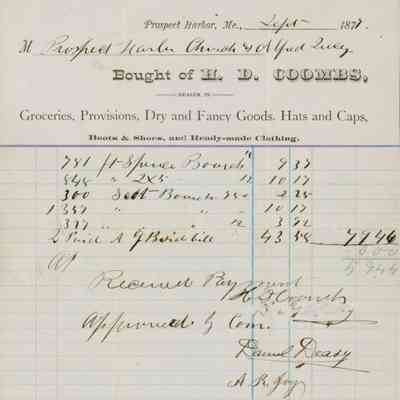 Prospect Harbor, Me., Sept 1877.
M Prospect Harbor Church
Bought of H. D. COOMBS,
DEALER IN
Groceries, Provisions, Dry and Fancy Goods. Hats and Caps,
Boots & Shoes, and Ready-made Clothing.
781 ft Spruce Boards 12 9 37
848 " 2x5 12 10 17
300 Boards 750 2 25
1 357 " " 10 17
327 " " 12 3 92
43 58 79 46
Received Payment
H. D. Coombs
Approved by Com.
Daniel Deasy